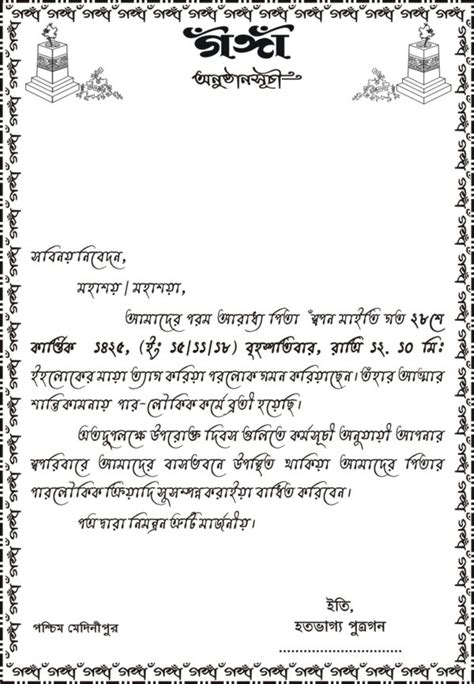 গঙ্গা
অনুষ্ঠানসূচী
সবিনয় নিবেদন,
মহাশয় / মহাশয়া,
আমাদের পরম আরাধ্য পিতা ঁস্বপন মাইতি গত ২৮শে
কার্ত্তিক ১৪২৫, (ইং ১৫/১১/১৮) বৃহস্পতিবার, রাত্রি ১২.১০ মি:
ইহলোকের মায়া ত্যাগ করিয়া পরলোক গমন করিয়াছেন। তাঁহার আত্মার
শান্তিকামনায় পার-লৌকিক কর্মে ব্রতী হয়েছি।
অতদুপলক্ষে উপরোক্ত দিবস গুলিতে কর্মসূচী অনুযায়ী আপনার
স্বপরিবারে আমাদের বাসভবনে উপস্থিত থাকিয়া আমাদের পিতার
পারলৌকিক ক্রিয়াদি সুসম্পন্ন করাইয়া বাধিত করিবেন।
পত্র দ্বারা নিমন্ত্রন ত্রুটি মার্জনীয়।
ইতি,
পশ্চিম মেদিনীপুর হতভাগ্য পুত্রগন